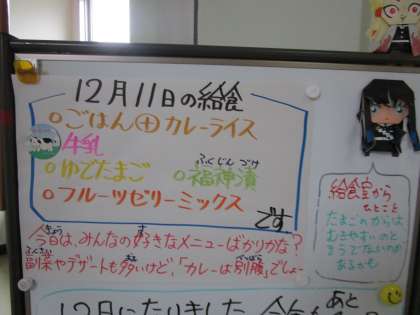 12月11日の給食
○ごはん㊉カレーライス
牛乳
○ゆでたまご
ふくじんづけ
○福神漬
○フルーツゼリーミックス
です
きょう す
今日は、みんなの好きなメニューばかりかな?
ふくさい おお べつばら
副菜やデザートも多いけど、「カレーは別腹」でしょ〜
給食室から
ひとこと
たまごのからは
むきやすいのと
そうでないのが
あるかも
あと
12日になりました。今年も